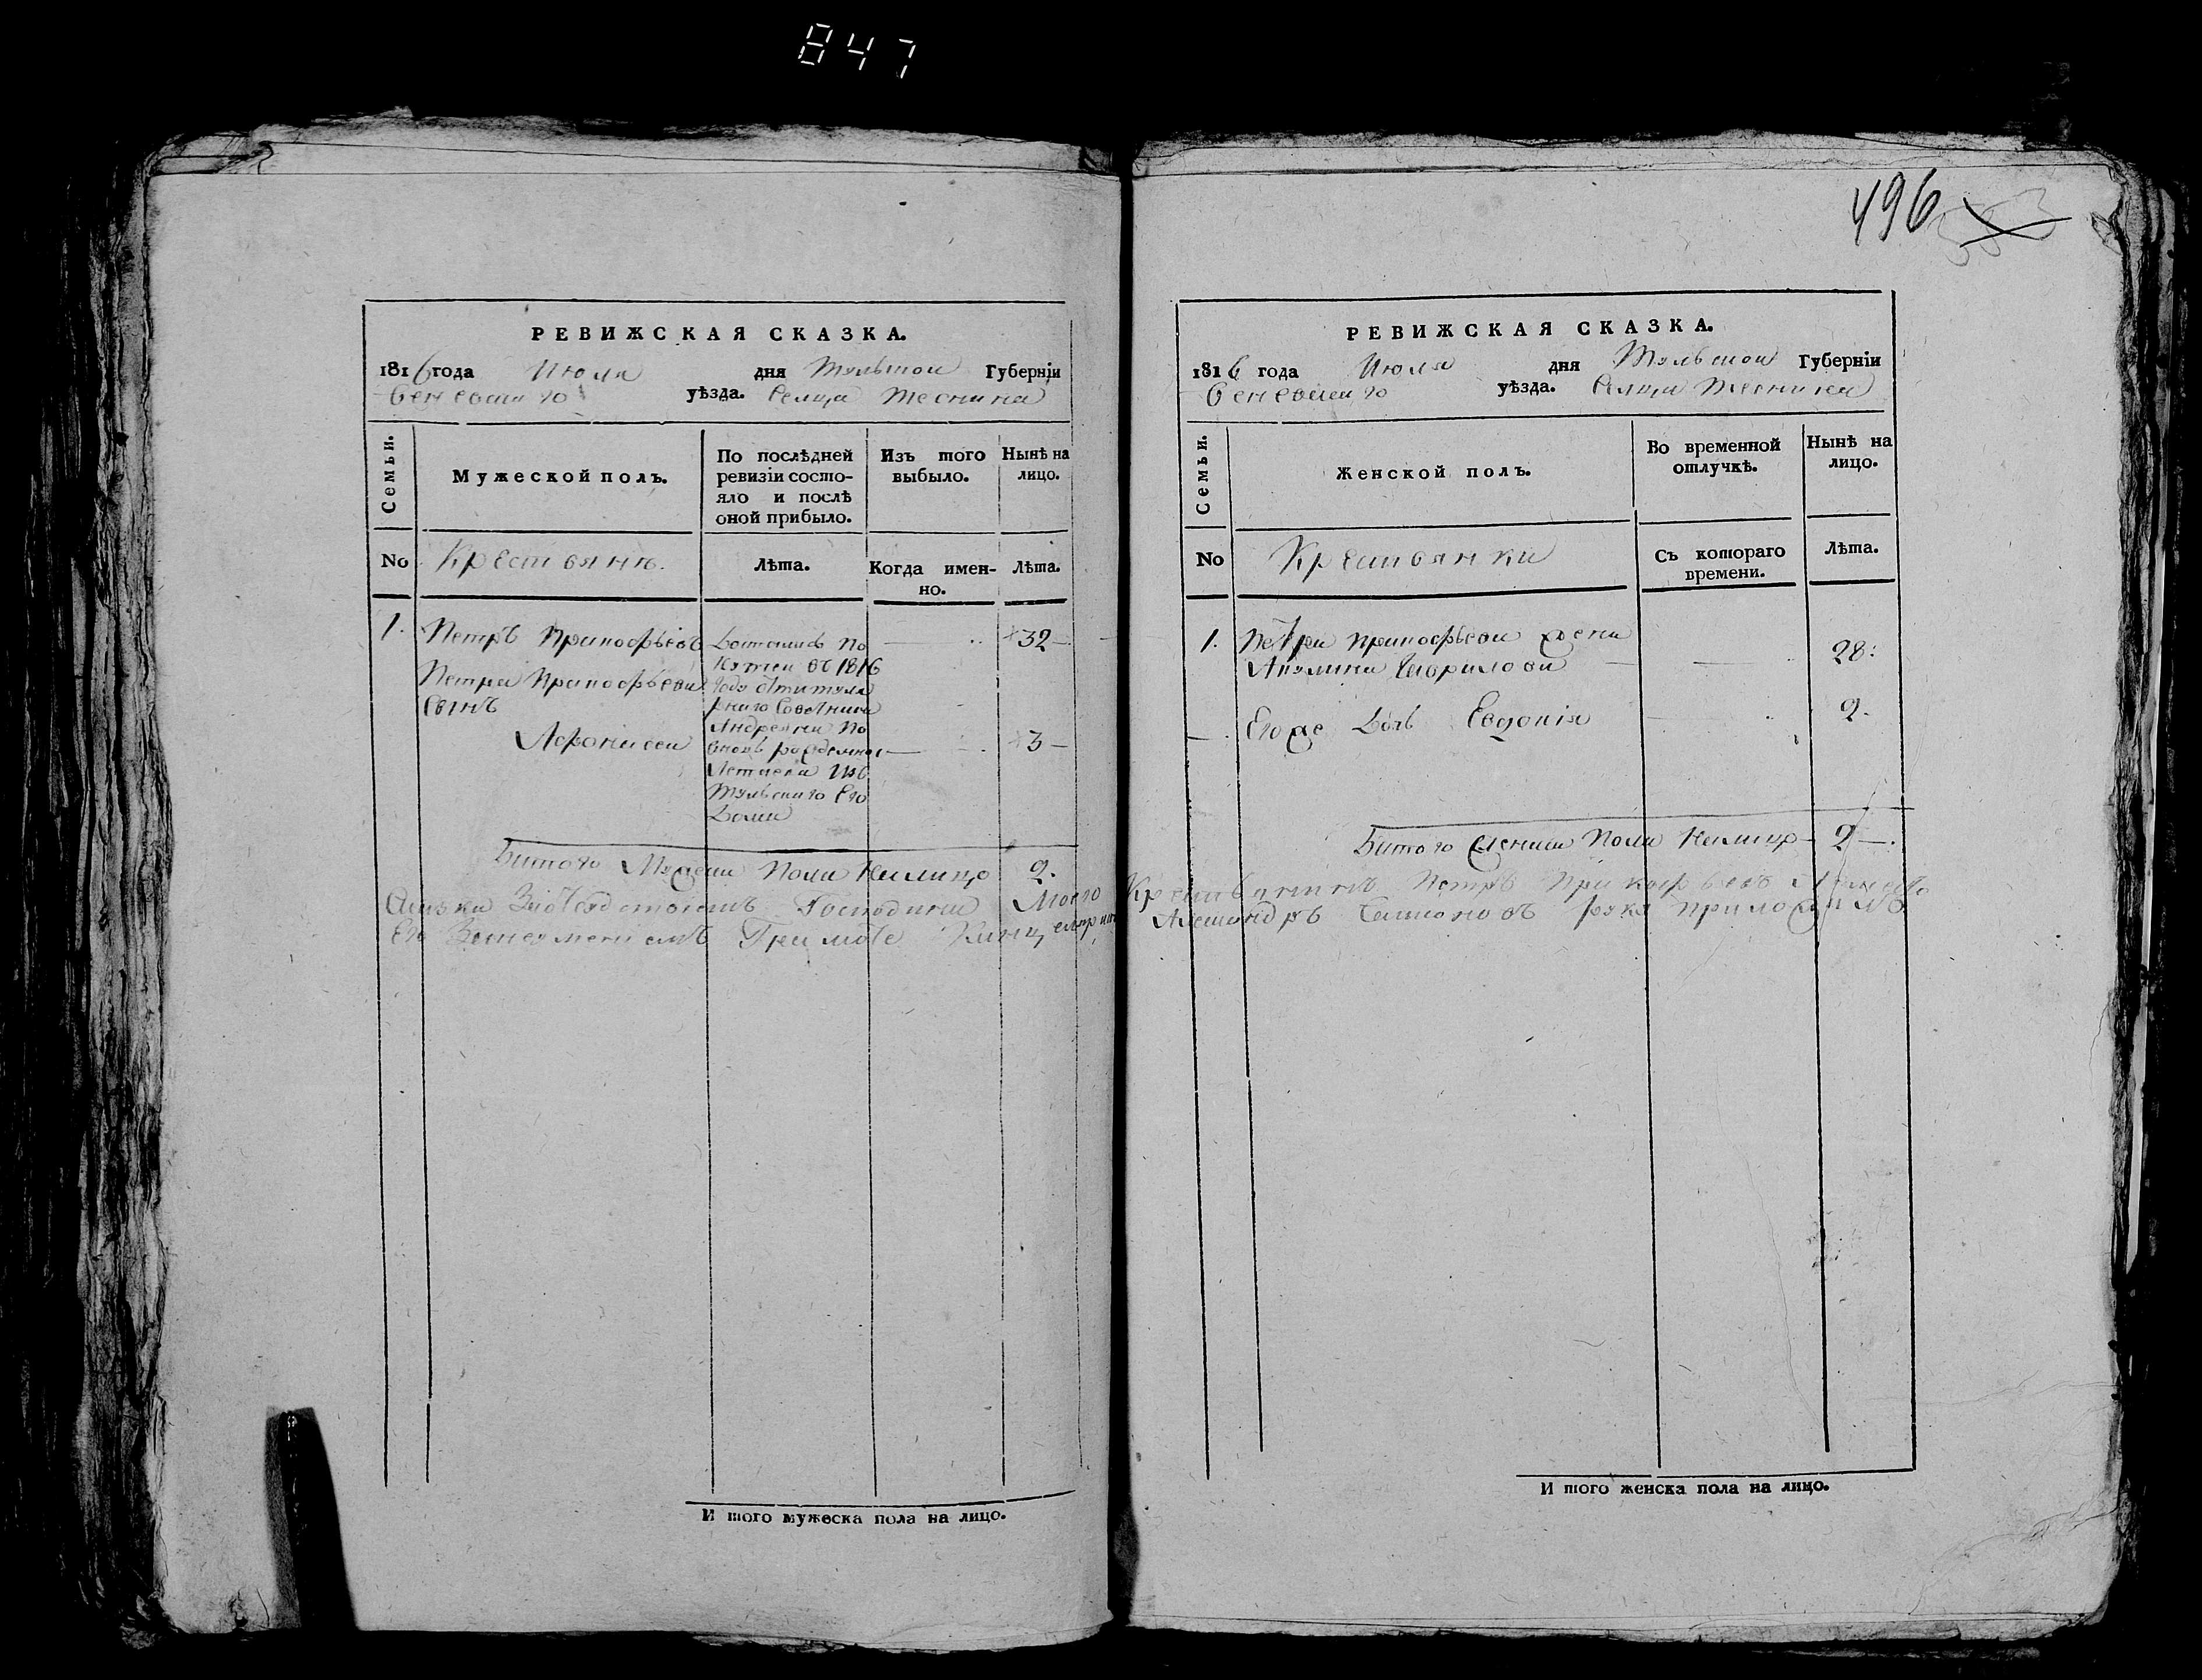 847
496
РЕВИЖСКАЯ СКАЗКА.
1816 года Июля дня Тульской Губерніи
Веневскаго уѣзда. Сельца Теснина
Семьи.
Мужеской полъ.
По послѣдней ревизіи состояло и послѣ оной прибыло.
Изъ того выбыло.
Нынѣ на лицо.
No
Крестьянъ.
Лѣта.
Когда именно.
Лѣта.
1. Петръ Пракофьевъ
32
Петра Пракофьева
сынъ
Афонасей
3
Достался по
купки въ 1816
году от титуля
рнаго советника
Андреяна По
вновь рожденно
Тульскаго его
Битого Мужска Пола Налицо 2.
РЕВИЖСКАЯ СКАЗКА.
1816 года Июля дня Тульской Губерніи
Веневскаго уѣзда. Сельца Теснина
Семьи.
Женской полъ.
Во временной отлучкѣ.
Нынѣ на лицо.
No
Крестьянки
Съ котораго времени.
Лѣта.
1. Петра Пракофьева жена
Акулина Гаврилова
28:
Егоже дочь Евдокія 2.
Битого Женска Пола Налицо 2
Господина Моего Крестьянинъ Петръ Пракофьевъ
Александръ рука приложилъ
И того мужеска пола на лицо.
И того женска пола на лицо.